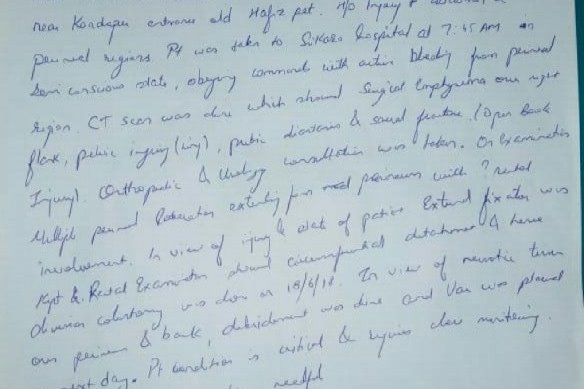 near Kondapur entrance old Hafiz pet. H/o Injury &
perineal regions. Pt was taken to Sikara Hospital at 7:45 AM in
Semi conscious state, obeying commands with active bleeding from perineal
region. CT scan was done which showed Surgical Emphysema over right
flank, pelvic injury, pubic diastasis & sacral fracture. (Open Book
Injury). Orthopaedic & Urology consultation was taken. On Examination
Multiple perineal laceration extending from perineum with ? rectal
involvement. In view of injury & state of patient External fixator was
Kept & Rectal Examination showed circumferential detachment & hence
diversion colostomy was done on 18/6/18. In view of necrotic tissue
over perineum & back, debridement was done and Vac was placed
next day. Pt condition is critical & requires close monitoring.
needful